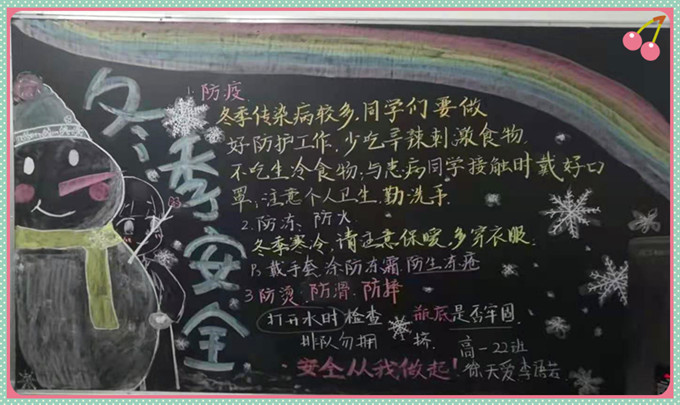 冬季安全
1.防疫
冬季传染病较多,同学们要做
好防护工作,少吃辛辣刺激食物
不吃生冷食物,与患病同学接触时戴好口
罩,注意个人卫生,勤洗手.
2.防冻、防火
冬季寒冷,请注意保暖,多穿衣服.
戴手套、涂防冻霜,防生冻疮
3防烫、防滑、防摔
打开水时检查瓶底是否牢固.
排队勿拥挤.
安全从我做起!
高一22班
徐天爱李语芸